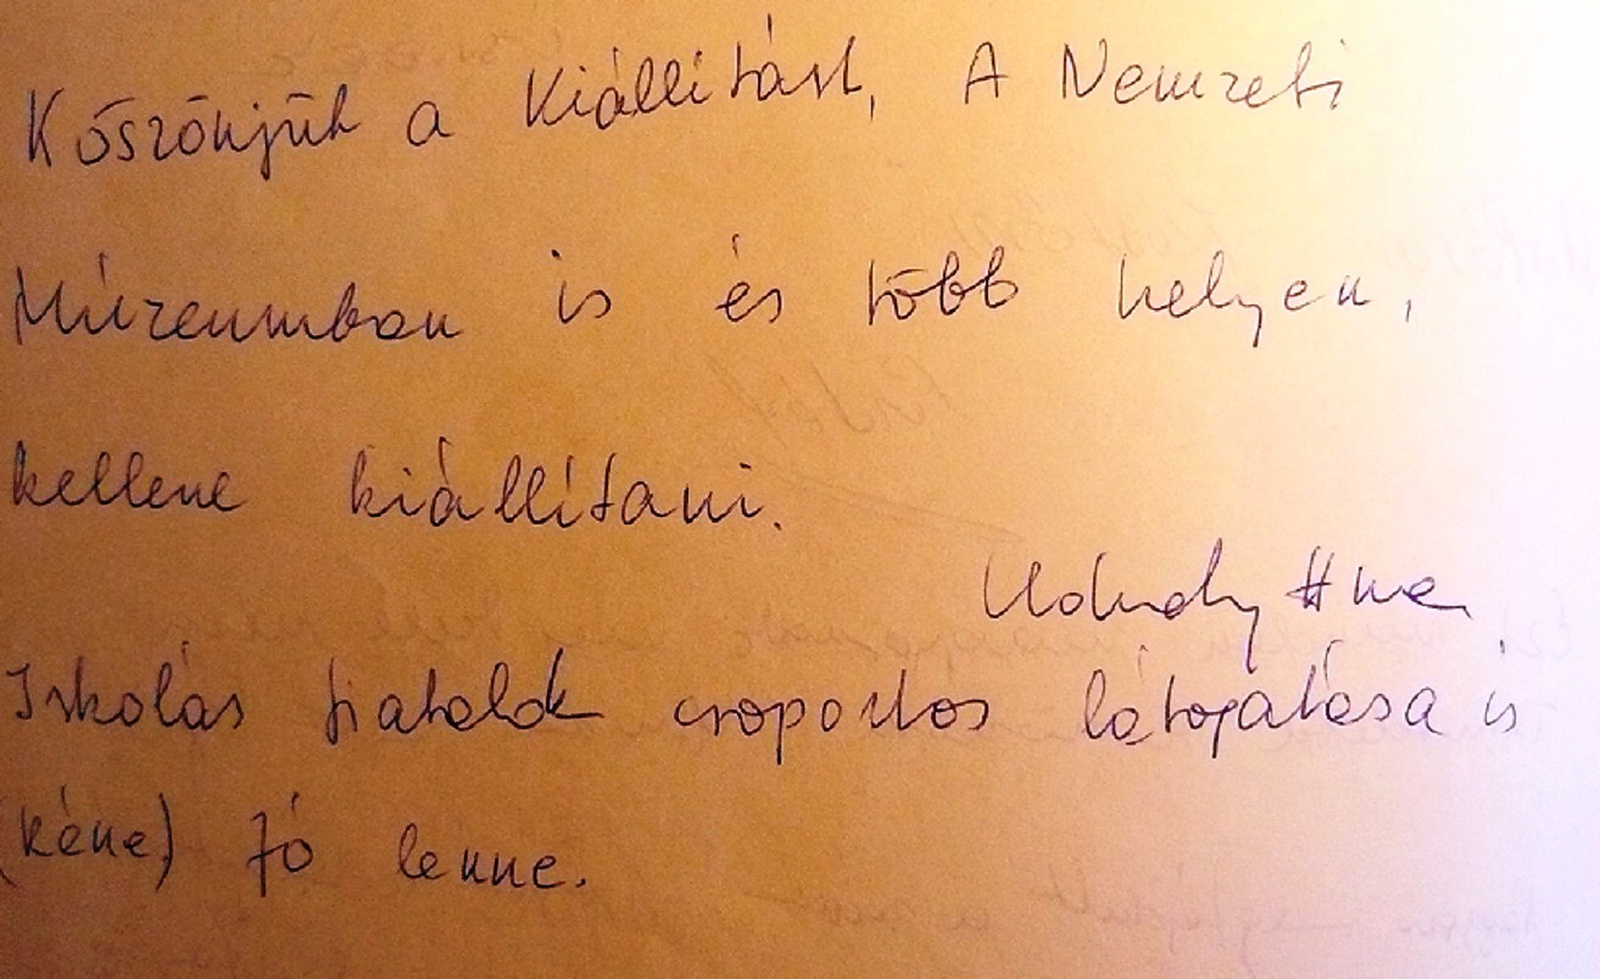 Köszönjük a Kiállítást, A Nemzeti
Múzeumban is és több helyen,
kellene kiállítani.
Iskolás fiatalok csoportos látogatása is
(kéne) Jó lenne.